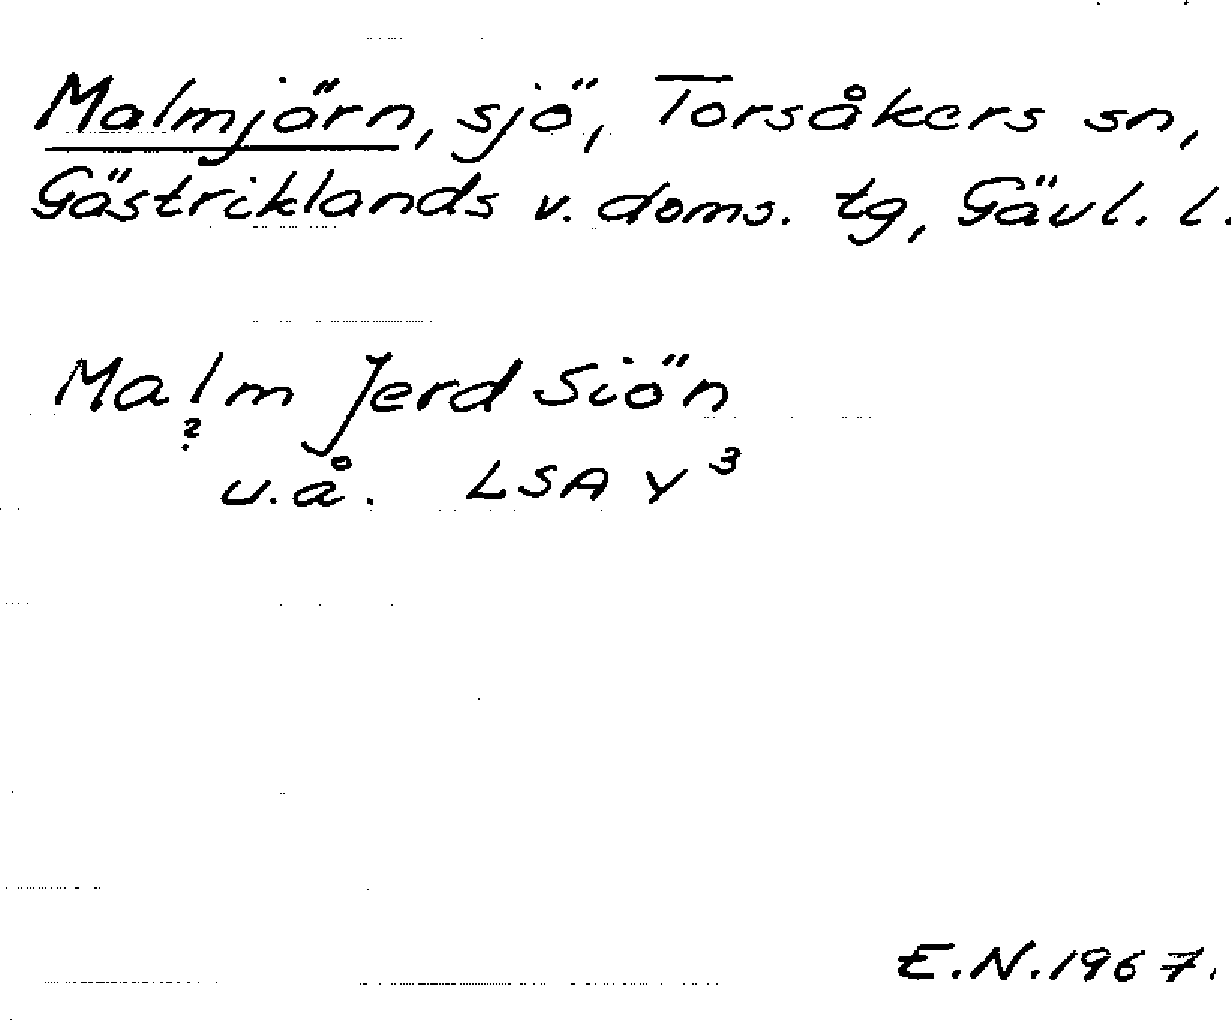 Malmjärn, sjö, Torsåkers sn,
Gästriklands v. doms. tg, Gävl. l.
Malm Jerd Siön
?
u.å. LSA Y3
E.N. 1967.